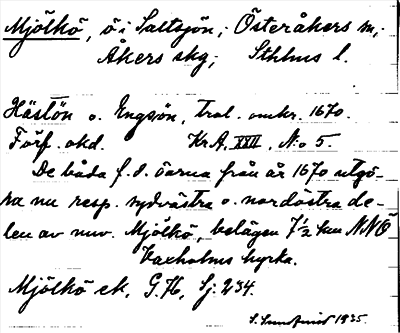 Mjölkö, ö i Saltsjön; Österåkers sn;
Åkers skg; Sthlms l.
Hästön o. Engsön, tral. omkr. 1670.
Förf. okd. Kr.A. XXII, No 5.
De båda f.d. öarna från år 1670 utgö-
ra nu resp. sydvästra o. nordöstra de-
len av nuv. Mjölkö, belägen 7 1/2 km NNÖ
Vaxholms kyrka.
Mjölkö ek. G.H, Sj. 234.
S. Sundquist 1935.